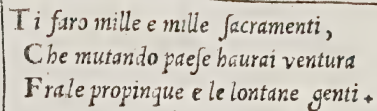 Ti faro mille e mille ſacramenti,
Che mutando paeſe haurai ventura
Frale propinque e le lontane genti.